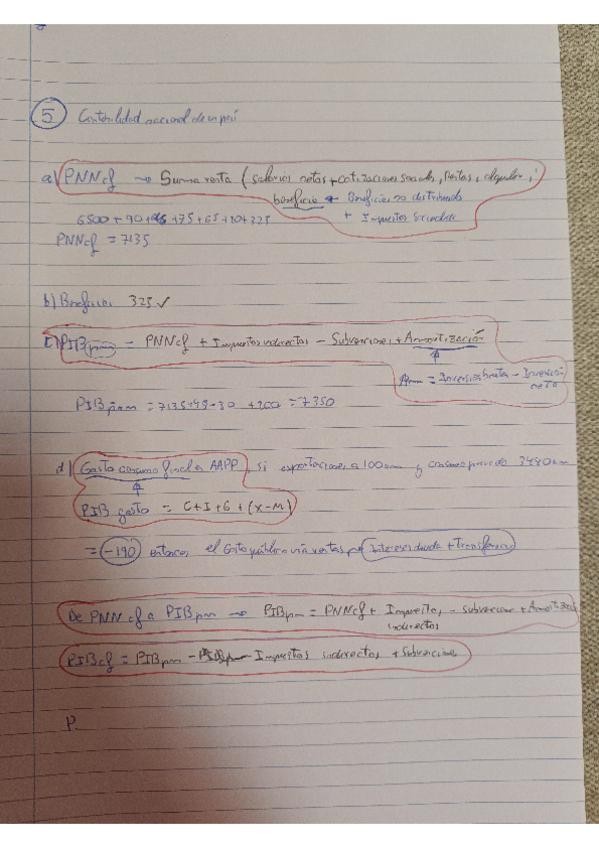 5 Contabilidad nacional de un país
a) PNNcf → Suma renta (salarios netos + cotizaciones sociales, Rentas, alquiler,
beneficio + Beneficios no distribuido
+ Impuestos Sociedades
6500 + 90 + + 75 + 65 + 20 + 325
PNNcf = 7135
b) Beneficios 325 ✓
c) PIBpm = PNNcf + Impuestos indirectos - Subvenciones + Amortización
= Inversión bruta - Inversión
neta
PIBpm = 7135 + 45 - 30 + 200 = 7350
d) Gasto consumo final AAPP, si exportaciones a 100um y consumo privado 3480um
PIB gasto = C + I + G + (X - M)
= -190 entonces el Gasto público vía rentas Intereses deuda + Transferencia
De PNNcf a PIBpm → PIBpm = PNNcf + Impuestos - subvenciones + Amortizació
indirectos
PIBcf = PIBpm - Impuestos indirectos + Subvenciones
P